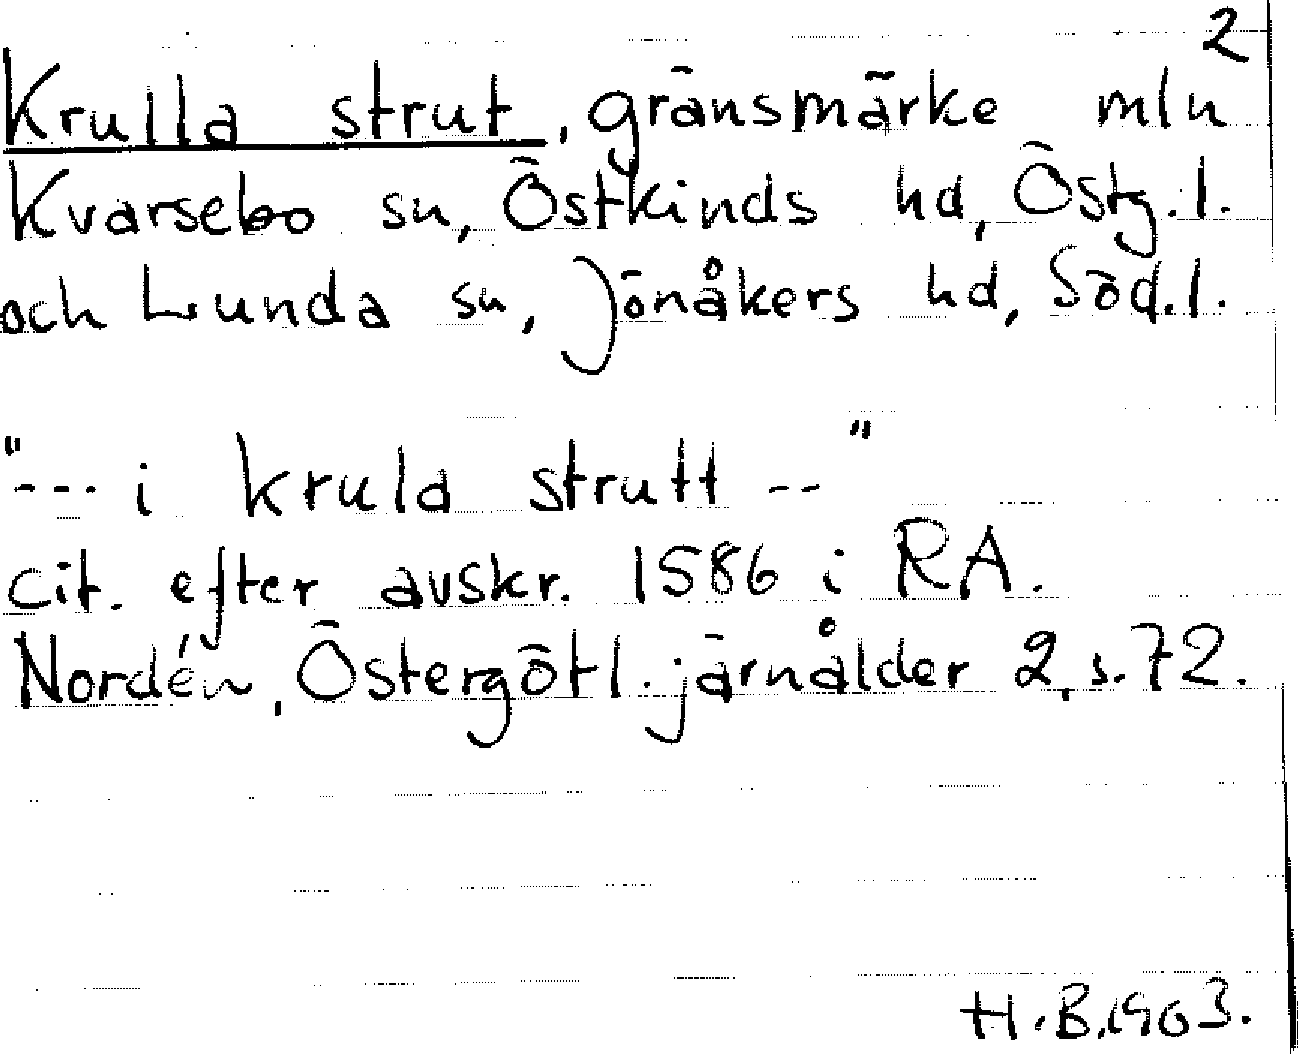 2
Krulla strut, gränsmärke mln
Kvarsebo sn, Östkinds hd, Östg.l.
och Lunda sn, Jönåkers hd, Söd.l.
"--- i krula strutt --"
cit. efter avskr. 1586 i RA.
Nordén, Östergötl. järnålder 2, s. 72.
H.B. 1963.